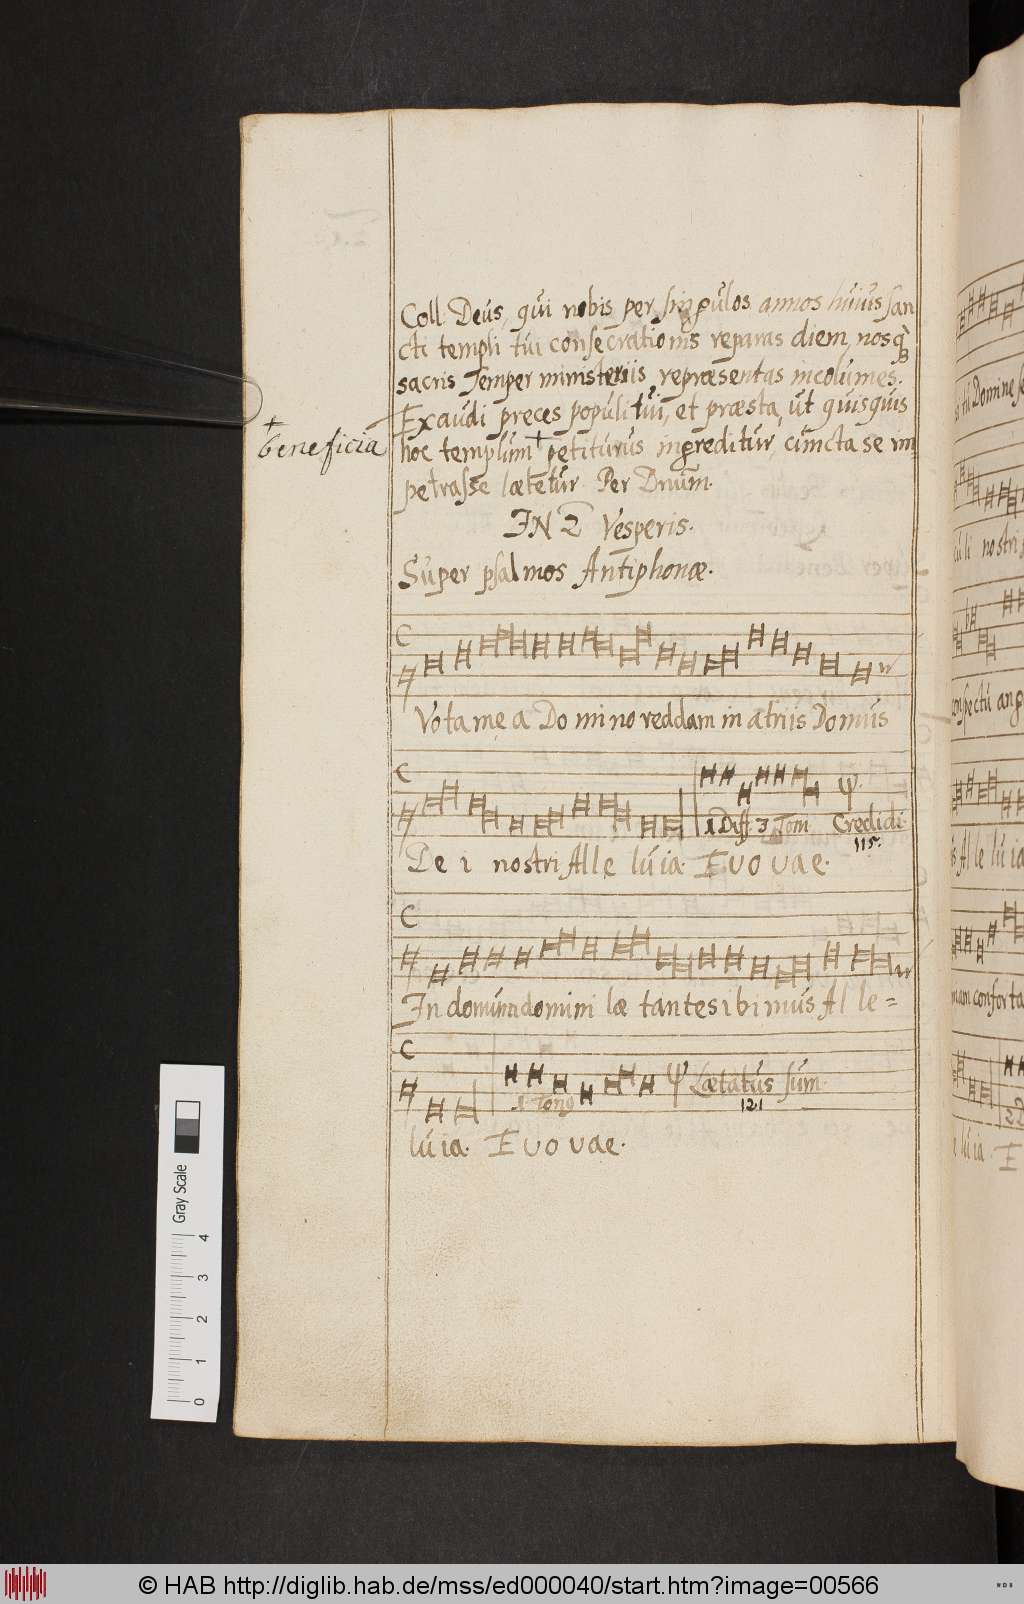 Coll. Deus, qui nobis per singulos annos huius san
cti templi tui consecrationis reparas diem, nosq
sacris semper ministeriis repræsentas incolumes.
Exaudi preces populi tui, et præsta, ut quisquis
beneficia
hoc templum petiturus ingreditur, cuncta se im
petrasse lætetur. Per Dnum.
IN 2 Vesperis.
Super psalmos Antiphonæ.
Vota mea Domino reddam in atriis Domus
1 Diff. 3 Tom. Credidi.
115.
De i nostri Alle luia. E u o u a e.
In domum domini læ tantes ibimus Al le=
1 Tong Ψ Lætatus sum.
121
luia. E u o u a e.
Gray Scale
0 1 2 3 4
© HAB http://diglib.hab.de/mss/ed000040/start.htm?image=00566